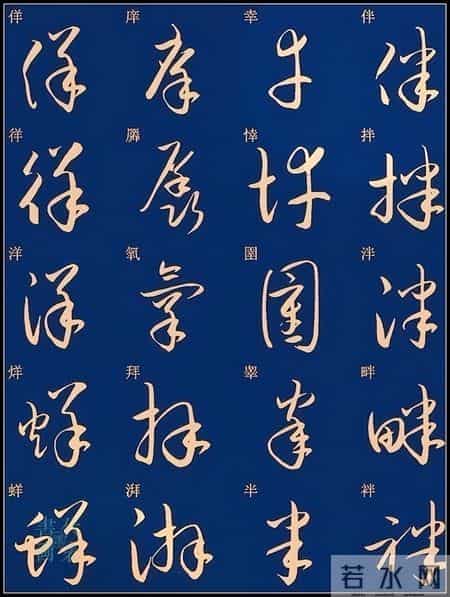 伴 幸 庠 佯
拌 悻 徉
泮 圉 氧 洋
畔 睾 拜 烊
袢 半 湃 蛘
若水网